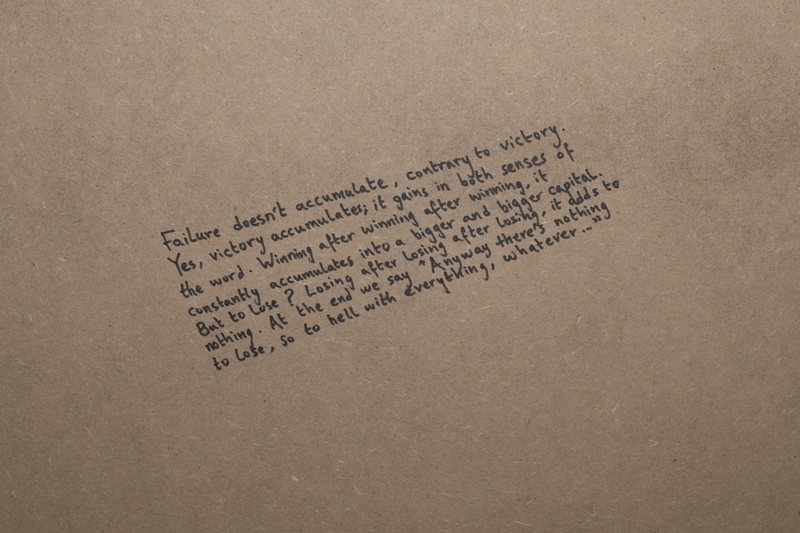 Failure doesn't accumulate, contrary to victory.
Yes, victory accumulates; it gains in both senses of
the word. Winning after winning after winning, it
constantly accumulates into a bigger and bigger capital.
But to lose? Losing after losing after losing, it adds to
nothing. At the end we say "Anyway there's nothing
to lose, so to hell with everything, whatever..."